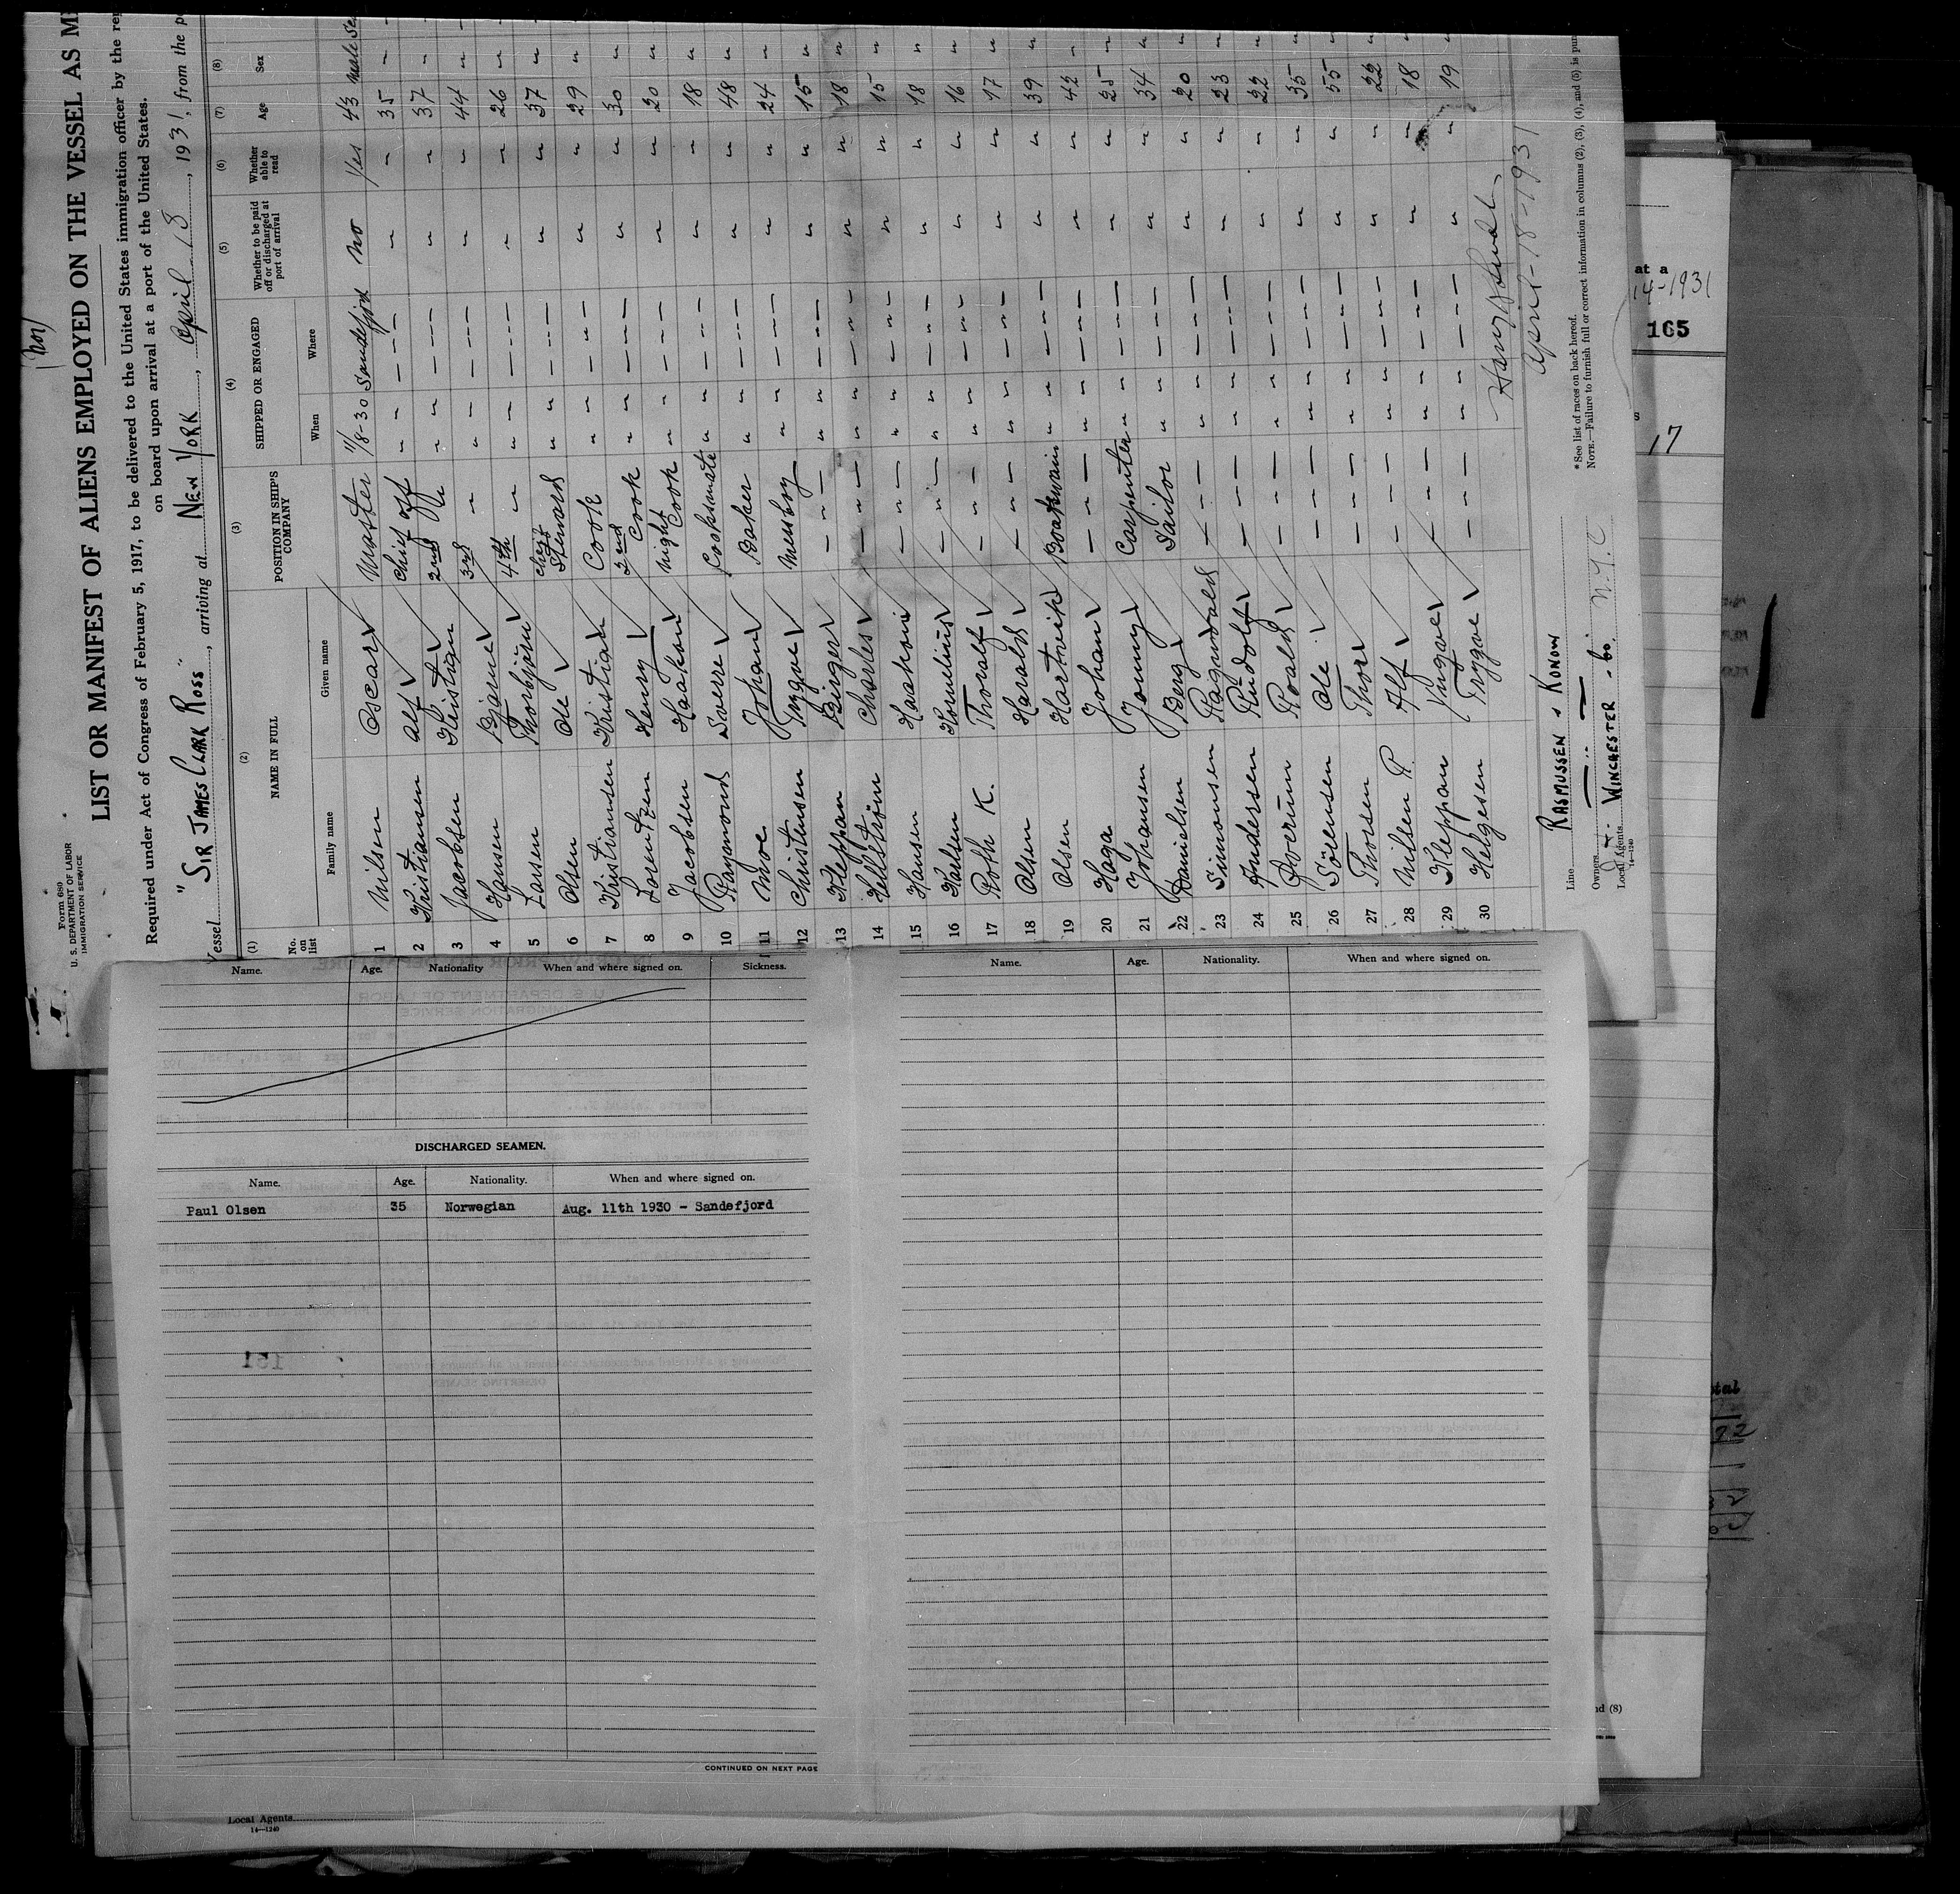 (nor)
Form 680
U. S. DEPARTMENT OF LABOR
IMMIGRATION SERVICE
LIST OR MANIFEST OF ALIENS EMPLOYED ON THE VESSEL AS
Required under Act of Congress of February 5, 1917, to be delivered to the United States immigration officer by the
on board upon arrival at a port of the United States.
Vessel "SIR JAMES CLARK ROSS", arriving at NEW YORK, April 18, 1931, from the
(1) (2) (3) (4) (5) (6) (7) (8)
No. on list NAME IN FULL POSITION IN SHIP'S COMPANY SHIPPED OR ENGAGED Whether to be paid off or discharged at port of arrival Whether able to read Age Sex
Family name Given name When Where
1 Nilsen Oscar Master 11/8-30 Sandefjord no Yes 43 male
2 Kristiansen Alf Chief off " — — — " " 35 "
3 Jacobsen Kristian 2nd " " — — — " " 37 "
4 Hansen Bjarne 3rd " " — — — " " 44 "
5 Larsen Thorbjörn 4th " " — — — " " 26 "
6 Olsen Ole chief Steward " — — — " " 37 "
7 Kristiansen Kristian Cook " — " — " " 29 "
8 Lorentzen Henry 2nd Cook " — — — " " 30 "
9 Jacobsen Haakon night Cook " — — — " " 20 "
10 Raymond Sverre Cooksmate " — — — " " 18 "
11 Moe Johan Baker " — — — " " 48 "
12 Christensen Trygve Messboy " — — — " " 24 "
13 Kleppan Birger — " — " — — — " " 15 "
14 Kellström Charles — " — " — " " " " 18 "
15 Hansen Haakon — " — " — " " " " 15 "
16 Karlsen Kornelius — " — " — " — " " 18 "
17 Roth K. Thoralf — " — " — " " " " 16 "
18 Olsen Harald — " — " — " — " " 17 "
19 Olsen Hartvik Boatswain " — " — " " 39 "
20 Haga Johan — " — " — " — " " 42 "
21 Johansen Jonny Carpenter " — — — " " 25 "
22 Danielsen Berg Sailor " — " — " " 34 "
23 Simonsen Ragnvald — " — " — — — " " 20 "
24 Andersen Rudolf — — — " — — — " " 23 "
25 Overum Roald — " — " — " — " " 22 "
26 Sörensen Ole — — — " — — — " " 35 "
27 Thorsen Thor — " — " — " — " " 55 "
28 Nilsen R. Alf — " — " — " — " " 22 "
29 Kleppan Yngve — " — " — " — " " 18 "
30 Helgesen Trygve — — — " — — — " " 19 "
April-18-1931
Line RASMUSSEN & KONOW
Owners — " —
Local Agents WINCHESTER & Co. N.Y.C
14—1240
*See list of races on back hereof.
NOTE.—Failure to furnish full or correct information in columns (2), (3), (4), and (5) is
at a
14-1931
165
17
Name. Age. Nationality When and where signed on. Sickness.
DISCHARGED SEAMEN.
Name. Age. Nationality. When and where signed on.
Paul Olsen 35 Norwegian Aug. 11th 1930 - Sandefjord
CONTINUED ON NEXT PAGE
Name. Age. Nationality. When and where signed on.
Local Agents
14—1240
nd (8)